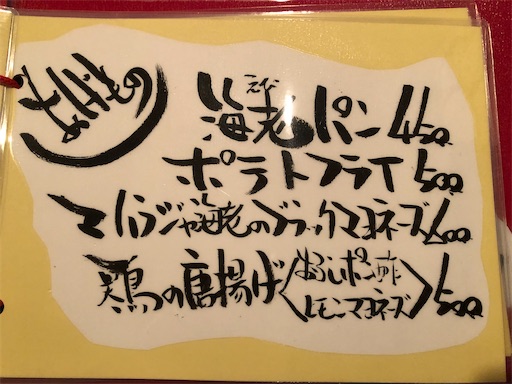 えび
海老パン 450
ポテトフライ 500
マハラジャ海老のブラックマヨネーズ 600
鶏の唐揚げ〈おろしポン酢 レモンマヨネーズ〉500